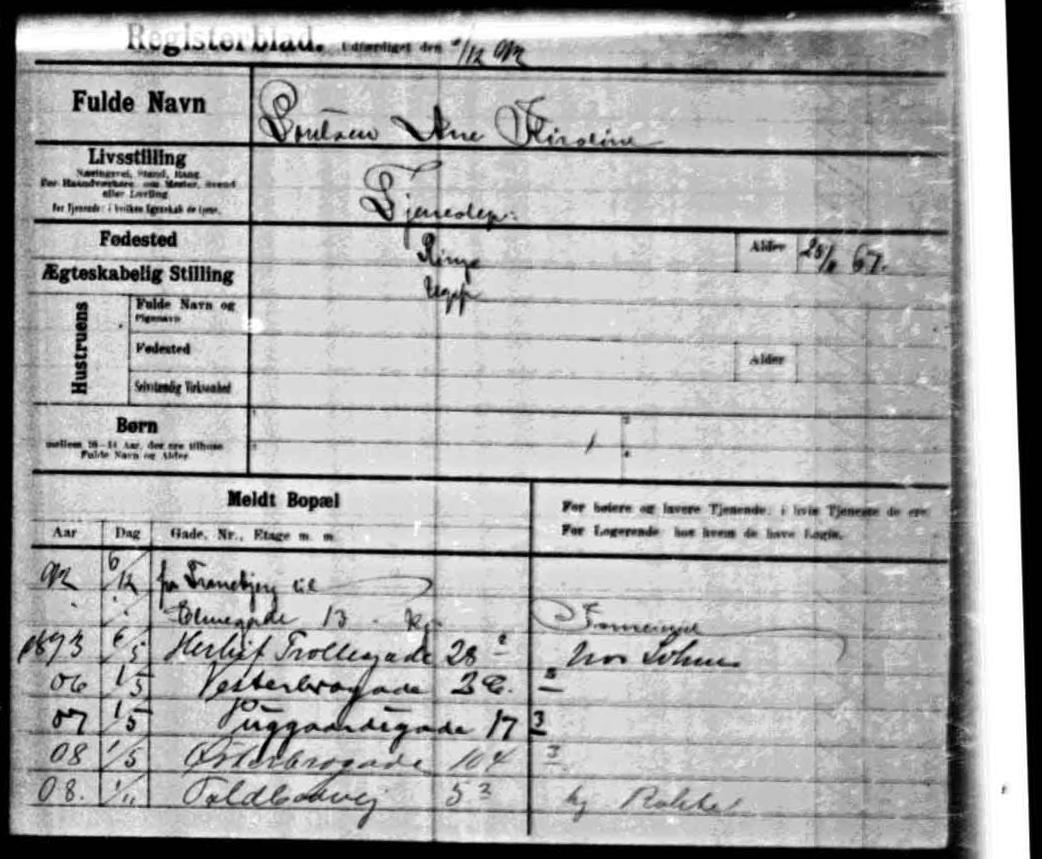 Registerblad. Udfærdiget den /12 92
Fulde Navn
Ane Kirstine
Livsstilling
Næringsvei, Stand, Rang
For Haandværkere: om Mester, Svend
eller Lærling
For Tjenende: i hvilken Egenskab de tjene.
Tjenestep:
Fødested Ringe Alder 67.
Ægteskabelig Stilling Ugift
Hustruens
Fulde Navn og
Pigenavn
Fødested Alder
Selvstændig Virksomhed
Børn 1 2
mellem 10-14 Aar, der ere tilhuse 3 4
Fulde Navn og Alder
Meldt Bopæl
For høiere og lavere Tjenende: i hvis Tjeneste de ere
For Logerende: hos hvem de have Logis.
Aar Dag Gade, Nr., Etage m. m.
92 6/12 fra Tranebjerg til
Elmegade 13
1893 6/5 Herluf Trollegade 28 2 hos
06 1/5 Vesterbrogade
07 1/5 Puggaardsgade 17 3
08 1/5 Østerbrogade 104 3
08. 1/11 Toldbodvej 5 3